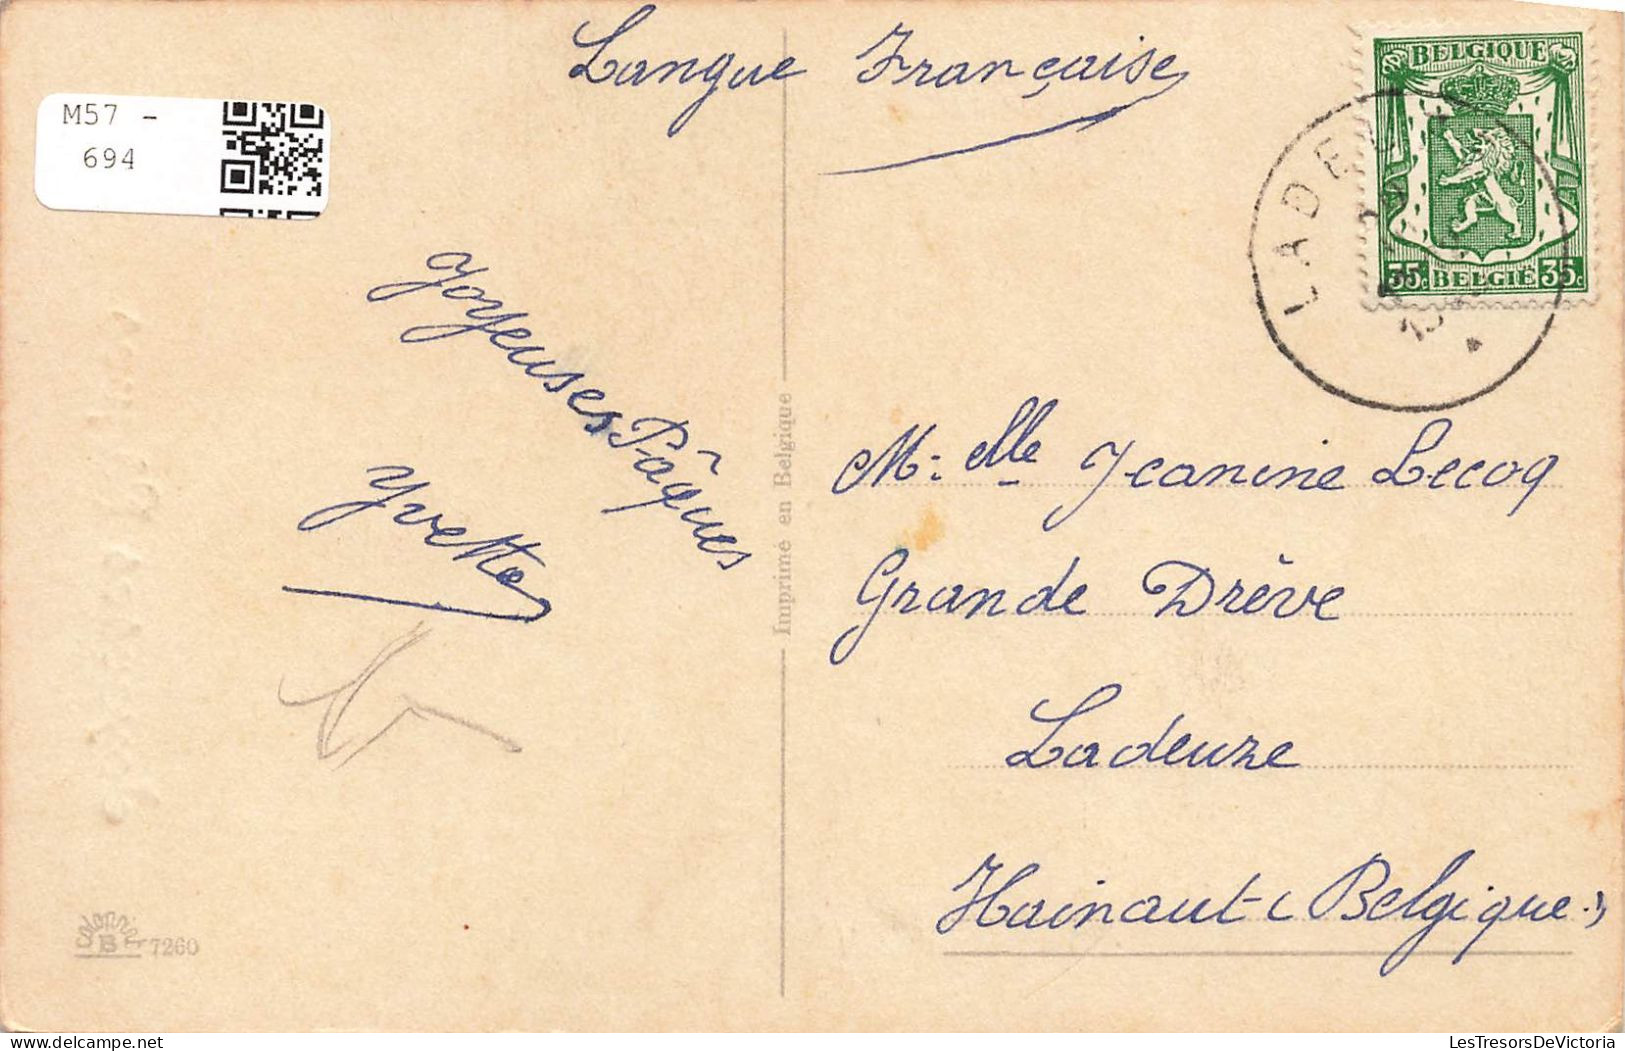 Langue Française
M57 -
694
BELGIQUE
35c BELGIË 35c
LADEU
Joyeuses Pâques
Yvette
Imprimé en Belgique
M.elle Jeanine Lecoq
Grande Drève
Ladeuze
Hainaut (Belgique.)
colorprint
B 7260
LesTresorsDeVictoria.delcampe.net
LesTresorsDeVictoria